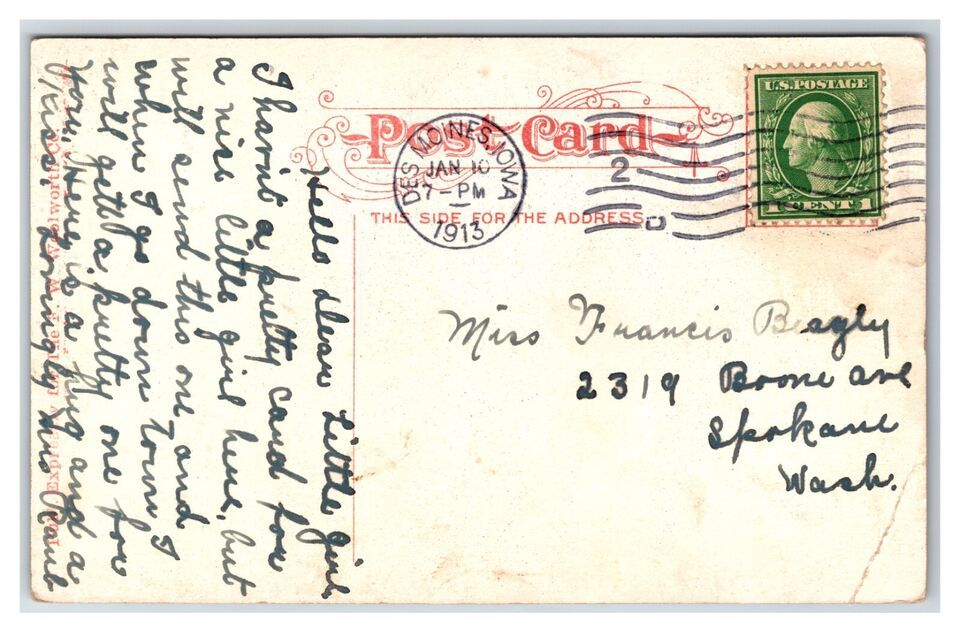 Post Card
THIS SIDE FOR THE ADDRESS.
DES MOINES, IOWA
JAN 10
7-PM
1913
2
D
U.S. POSTAGE
1 CENT 1
Miss Francis Beagly
2319 Boone ave
Spokane
Wash.
Hello dear Little girl
I havn't a pretty card for
a nice little girl here, but
will send this one, and
when I go down town I
will gett a pretty one for
you, Here is a hug and a
kiss. Lovingly Mrs Raub
Expressly for The F. W. Woolworth Co.